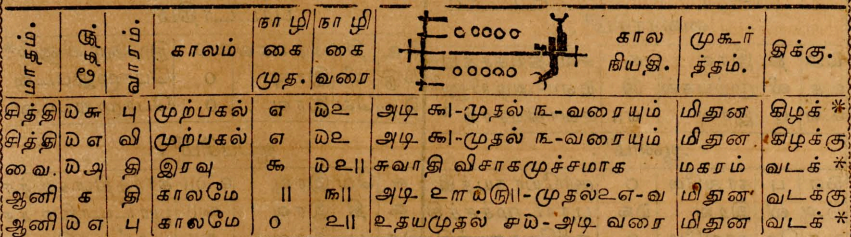 மாதம். தேதி. வாரம். காலம் நாழிகை முத. நாழிகை வரை கால நியதி. முகூர்த்தம். திக்கு.
சித்தி ௰௬ பு முற்பகல் ௭ ௰௨ அடி ௯।-முதல் ௩-வரையும் மிதுன கிழக் *
சித்தி ௰௭ வி முற்பகல் ௭ ௰௨ அடி ௯।-முதல் ௩-வரையும் மிதுன கிழக்கு
வை. ௰௮ தி இரவு ௯ ௰௨॥ சுவாதி விசாகமுச்சமாக மகரம் வடக் *
ஆனி ௧ தி காலமே ॥ ௩॥ அடி ௨ா௰௫॥-முதல்௨௭-வ மிதுன வடக்கு
ஆனி ௰௭ பு காலமே 0 ௨॥ உதயமுதல் ௪௰-அடி வரை மிதுன வடக் *